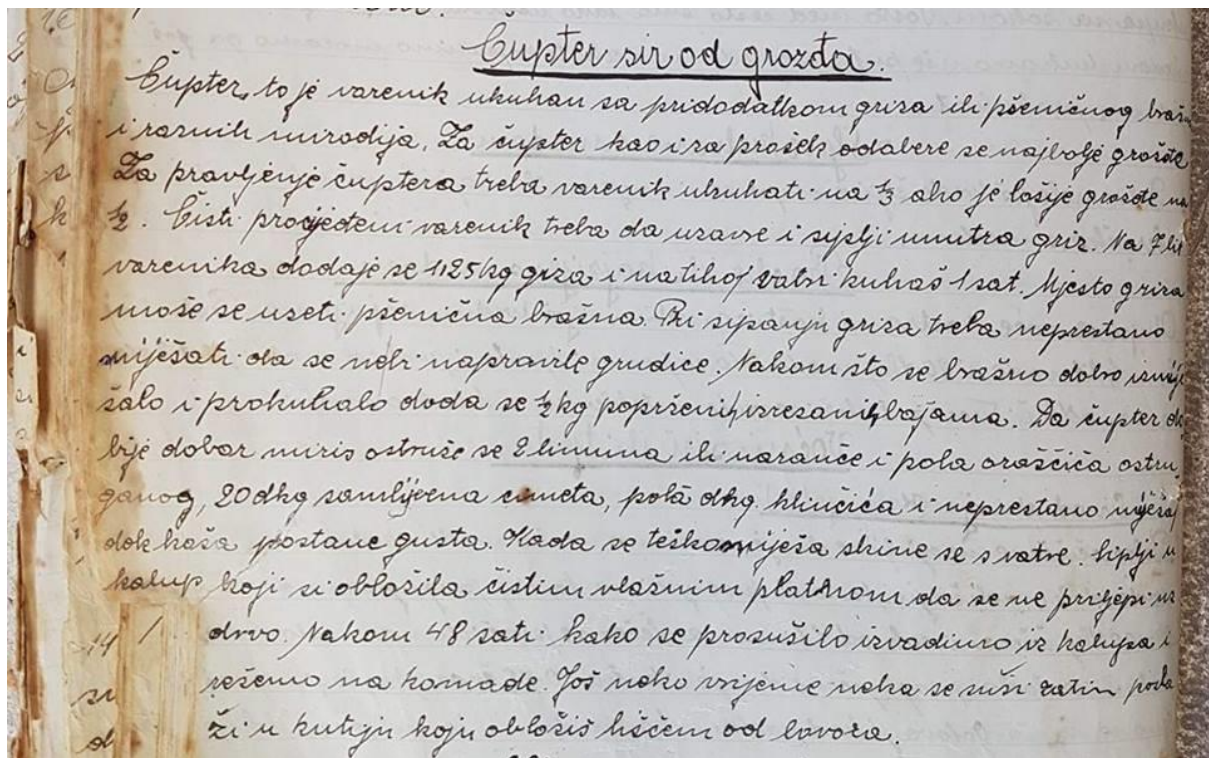 Čupter sir od grožđa.
Čupter, to je varenik ukuhan sa pridodatkom griza ili pšeničnog braš
i raznih mirodija. Za čupter kao i za prošek odabere se najbolje grožđe
Za pravljenje čuptera treba varenik ukuhati na 1/3 ako je lošije grožđe na
1/2. Čisti procijeđeni varenik treba da uzavre i siplji unutra griz. Na 7 lit
varenika dodaje se 1,25 kg giza i na tihoj vatri kuhaš 1 sat. Mjesto griza
može se uzeti pšenična brašna. Pri sipanju griza treba neprestano
miješati da se nebi napravile grudice. Nakom što se brašno dobro izmije
šalo i prokuhalo doda se 1/2 kg poprženih izrezanih bajama. Da čupter do
bije dobar miris ostruže se 2 limuna ili naranče i pola oraščića ostru
ganog, 20 dkg samljevena cimeta, pola dkg. klinčića i neprestano miješaj
dok kaša postane gusta. Kada se teško miješa skine se s vatre. Siplji u
kalup koji si obložila čistim vlažnim platnom da se ne prilijepi uz
drvo. Nakom 48 sati kako se prosušilo izvadimo iz kalupa i
režemo na komade. Još neko vrijeme neka se suši zatim posla
ži u kutiju koju obložiš lišćem od lovora.